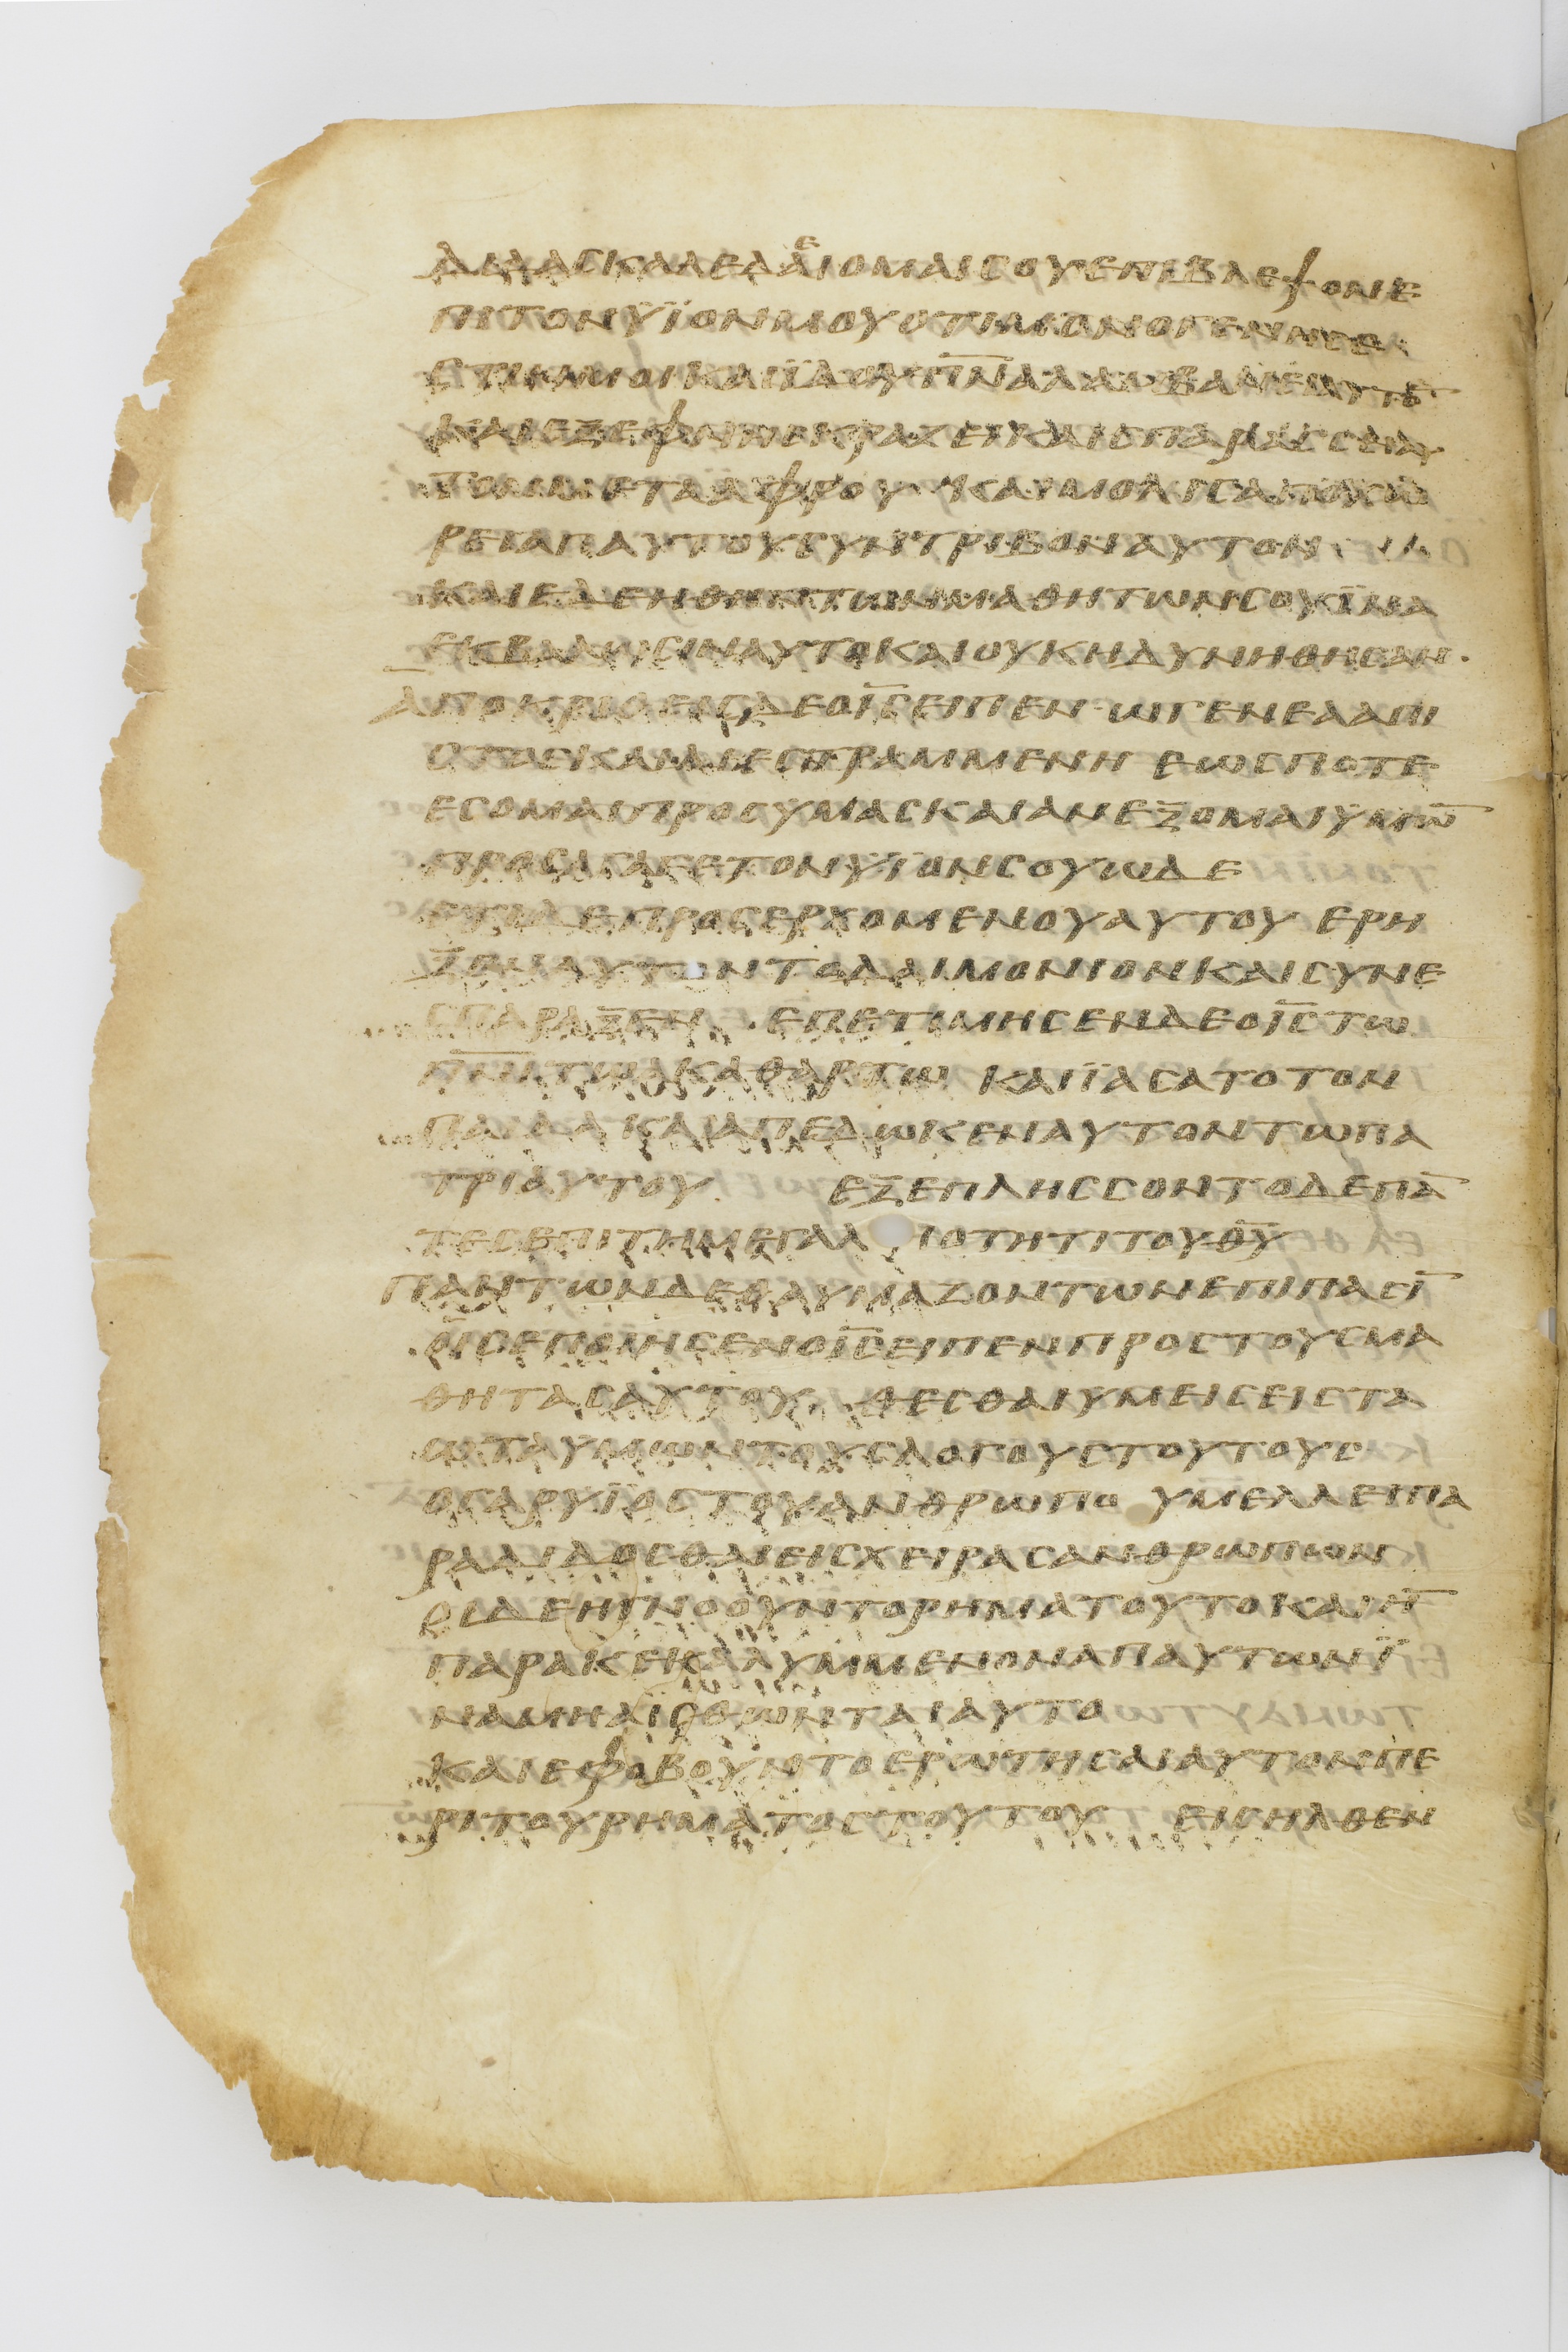 ΔΙΔΑϹΚΑΛΕ ΔΕΟΜΑΙ ϹΟΥ ΕΠΙΒΛΕΨΟΝ Ε
ΠΙ ΤΟΝ ΥΪΟΝ ΜΟΥ ΟΤΙ ΜΟΝΟΓΕΝΗϹ ΜΟΙ
ΕϹΤΙΝ ΚΑΙ ΙΔΟΥ Π̅Ν̅Α̅ ΛΑΜΒΑΝΕΙ ΑΥΤΟ̅
ΚΑΙ ΕΞΕΦΝΗϹ ΚΡΑΖΕΙ ΚΑΙ ϹΠΑΡΑϹϹΕΙ
ΑΥΤΟΝ ΜΕΤΑ ΑΦΡΟΥ ΚΑΙ ΜΟΛΙϹ ΑΠΟΧΩ
ΡΕΙ ΑΠ ΑΥΤΟΥ ϹΥΝΤΡΙΒΟΝ ΑΥΤΟΝ
ΚΑΙ ΕΔΕΗΘΗΝ ΤΩΝ ΜΑΘΗΤΩΝ ϹΟΥ ΪΝΑ
ΕΚΒΑΛΩϹΙΝ ΑΥΤΟ ΚΑΙ ΟΥΚ ΗΔΥΝΗΘΗϹΑΝ
ΑΠΟΚΡΙΘΕΙϹ ΔΕ Ο Ι̅Ϲ̅ ΕΙΠΕΝ Ω ΓΕΝΕΑ ΑΠΙ
ϹΤΟϹ ΚΑΙ ΔΙΕϹΤΡΑΜΜΕΝΗ ΕΩϹ ΠΟΤΕ
ΕϹΟΜΑΙ ΠΡΟϹ ΥΜΑϹ ΚΑΙ ΑΝΕΞΟΜΑΙ ΥΜΩ̅
ΠΡΟϹΑΓΑΓΕ ΤΟΝ ΥΪΟΝ ϹΟΥ ΩΔΕ
ΕΤΙ ΔΕ ΠΡΟϹΕΡΧΟΜΕΝΟΥ ΑΥΤΟΥ ΕΡΗ
ΞΕΝ ΑΥΤΟΝ ΤΟ ΔΑΙΜΟΝΙΟΝ ΚΑΙ ϹΥΝΕ
ϹΠΑΡΑΞΕΝ ΕΠΕΤΙΜΗϹΕΝ ΔΕ Ο Ι̅Ϲ̅ ΤΩ
Π̅Ν̅Ι̅ ΤΩ ΑΚΑΘΑΡΤΩ ΚΑΙ ΪΑϹΑΤΟ ΤΟΝ
ΠΑΙΔΑ ΚΑΙ ΑΠΕΔΩΚΕΝ ΑΥΤΟΝ ΤΩ ΠΑ
ΤΡΙ ΑΥΤΟΥ ΕΞΕΠΛΗϹϹΟΝΤΟ ΔΕ ΠΑ̅
ΤΕϹ ΕΠΙ ΤΗ ΜΕΓΑΛΙΟΤΗΤΙ ΤΟΥ Θ̅Υ̅
ΠΑΝΤΩΝ ΔΕ ΘΑΥΜΑΖΟΝΤΩΝ ΕΠΙ ΠΑϹΙ̅
ΟΙϹ ΕΠΟΙΗϹΕΝ Ο Ι̅Ϲ̅ ΕΙΠΕΝ ΠΡΟϹ ΤΟΥϹ ΜΑ
ΘΗΤΑϹ ΑΥΤΟΥ ΘΕϹΘΑΙ ΥΜΕΙϹ ΕΙϹ ΤΑ
ΩΤΑ ΥΜΩΝ ΤΟΥϹ ΛΟΓΟΥϹ ΤΟΥΤΟΥϹ
Ο ΓΑΡ ΥΪΟϹ ΤΟΥ ΑΝΘΡΩΠΟΥ ΜΕΛΛΕΙ ΠΑ
ΡΑΔΙΔΟϹΘΑΙ ΕΙϹ ΧΕΙΡΑϹ ΑΝΘΡΩΠΩΝ
ΟΙ ΔΕ ΗΓΝΟΟΥΝ ΤΟ ΡΗΜΑ ΤΟΥΤΟ ΚΑΙ Η̅
ΠΑΡΑΚΕΚΑΛΥΜΜΕΝΟΝ ΑΠ ΑΥΤΩΝ Ϊ
ΝΑ ΜΗ ΑΙϹΘΩΝΤΑΙ ΑΥΤΟ
ΚΑΙ ΕΦΟΒΟΥΝΤΟ ΕΡΩΤΗϹΑΙ ΑΥΤΟΝ ΠΕ
ΡΙ ΤΟΥ ΡΗΜΑΤΟϹ ΤΟΥΤΟΥ ΕΙϹΗΛΘΕΝ